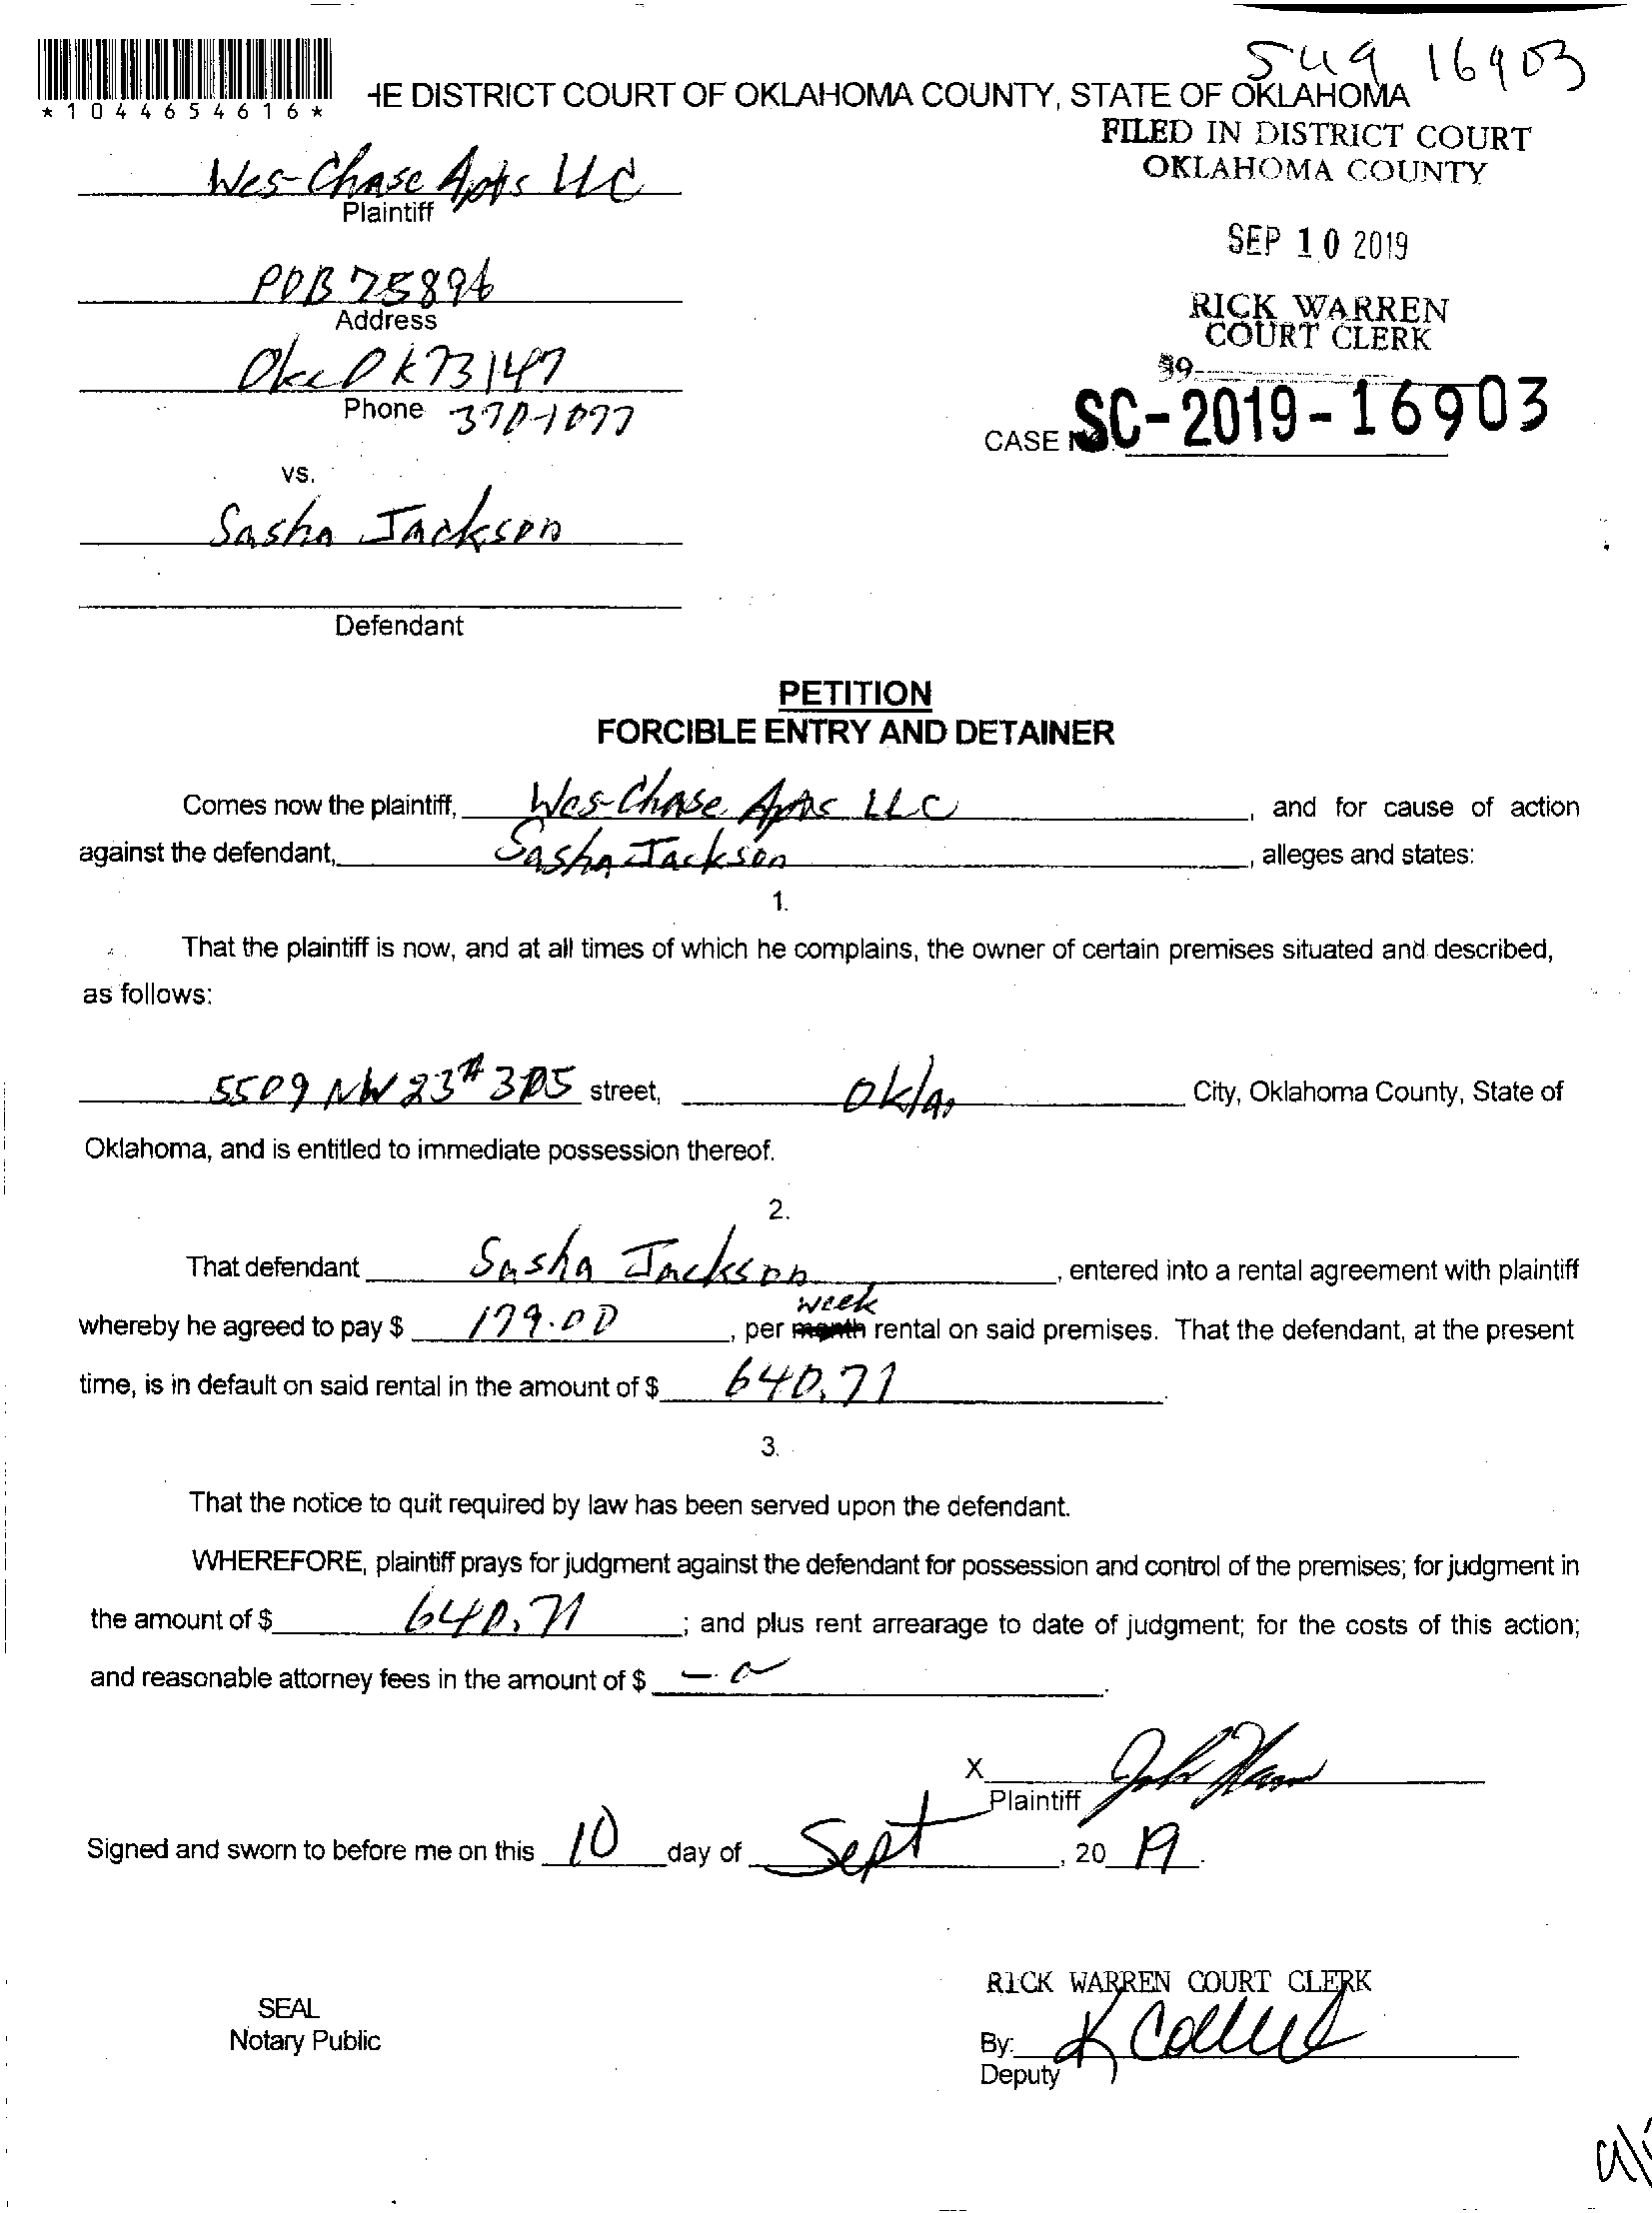 Sug 16903
*1044654616*
HE DISTRICT COURT OF OKLAHOMA COUNTY, STATE OF OKLAHOMA
FILED IN DISTRICT COURT
OKLAHOMA COUNTY
Wes-Chase Apts LLC
Plaintiff
SEP 10 2019
POB 75896
Address
RICK WARREN
COURT CLERK
Okc Ok 73147
39
Phone 370-1077
CASE NO. SC-2019-16903
vs.
Sasha Jackson
Defendant
PETITION
FORCIBLE ENTRY AND DETAINER
Comes now the plaintiff, Wes-Chase Apts LLC, and for cause of action
against the defendant, Sasha Jackson, alleges and states:
1.
That the plaintiff is now, and at all times of which he complains, the owner of certain premises situated and described,
as follows:
5509 NW 23 # 305 street, Okla. City, Oklahoma County, State of
Oklahoma, and is entitled to immediate possession thereof.
2.
That defendant Sasha Jackson, entered into a rental agreement with plaintiff
week
whereby he agreed to pay $ 179.00, per month rental on said premises. That the defendant, at the present
time, is in default on said rental in the amount of $ 640.71.
3.
That the notice to quit required by law has been served upon the defendant.
WHEREFORE, plaintiff prays for judgment against the defendant for possession and control of the premises; for judgment in
the amount of $ 640.71; and plus rent arrearage to date of judgment; for the costs of this action;
and reasonable attorney fees in the amount of $ -0-.
X
Plaintiff
Signed and sworn to before me on this 10 day of Sept, 20 19.
RICK WARREN COURT CLERK
SEAL
Notary Public
By:
Deputy